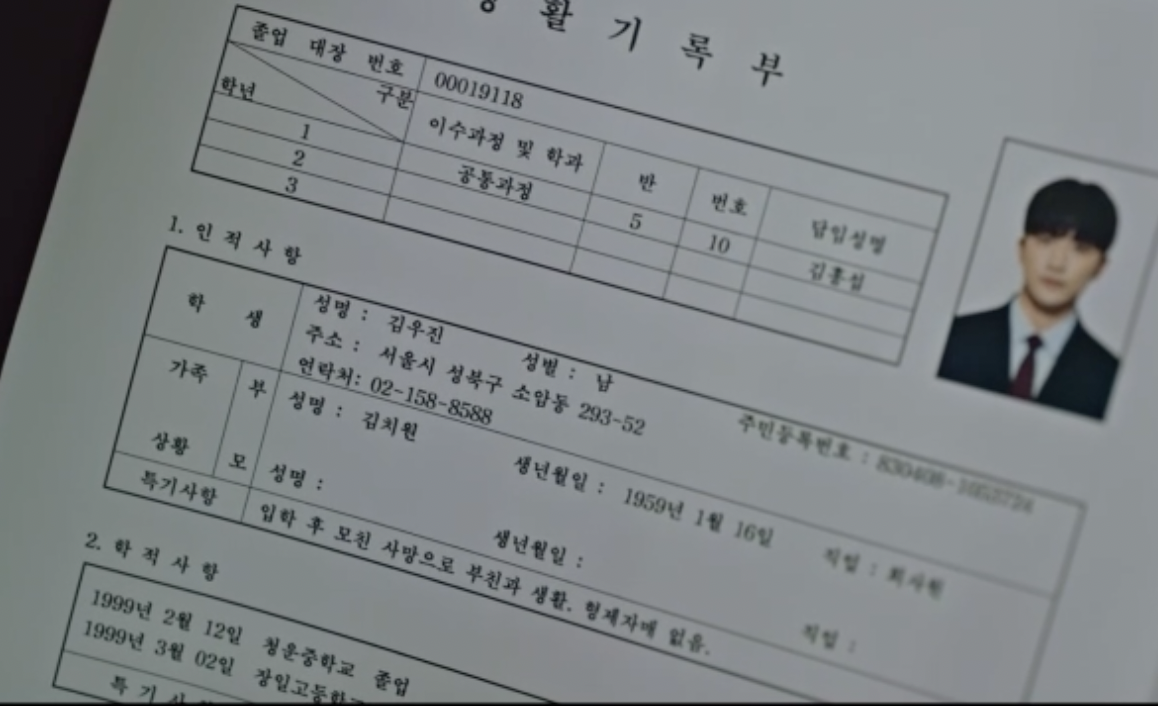 활 기 록 부
졸업 대장 번호 00019118
학년 구분 이수과정 및 학과 반 번호 담임성명
1 공통과정 5 10 김홍섭
2
3
1. 인 적 사 항
학 생 성명 : 김우진 성별 : 남 주민등록번호 :
주소 : 서울시 성북구 소암동 293-52
연락처: 02-158-8588
가족 상황 부 성명 : 김치원 생년월일 : 1959년 1월 16일 직업 : 회사원
모 성명 : 생년월일 : 직업 :
특기사항 입학 후 모친 사망으로 부친과 생활. 형제자매 없음.
2. 학 적 사 항
1999년 2월 12일 청운중학교 졸업
1999년 3월 02일 장일고등학교
특 기 사